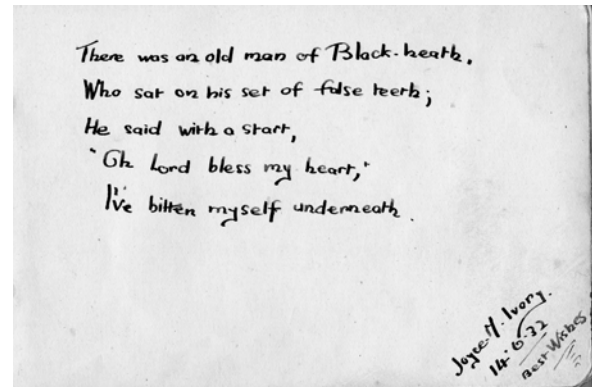 There was an old man of Black-heath,
Who sat on his set of false teeth;
He said with a start,
"Oh Lord bless my heart,"
I've bitten myself underneath.
Joyce. M. Ivory.
14.6.32
Best Wishes